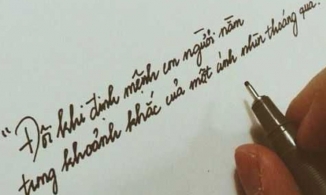 "Đôi khi định mệnh con người nằm
trong khoảnh khắc của một ánh nhìn thoáng qua.